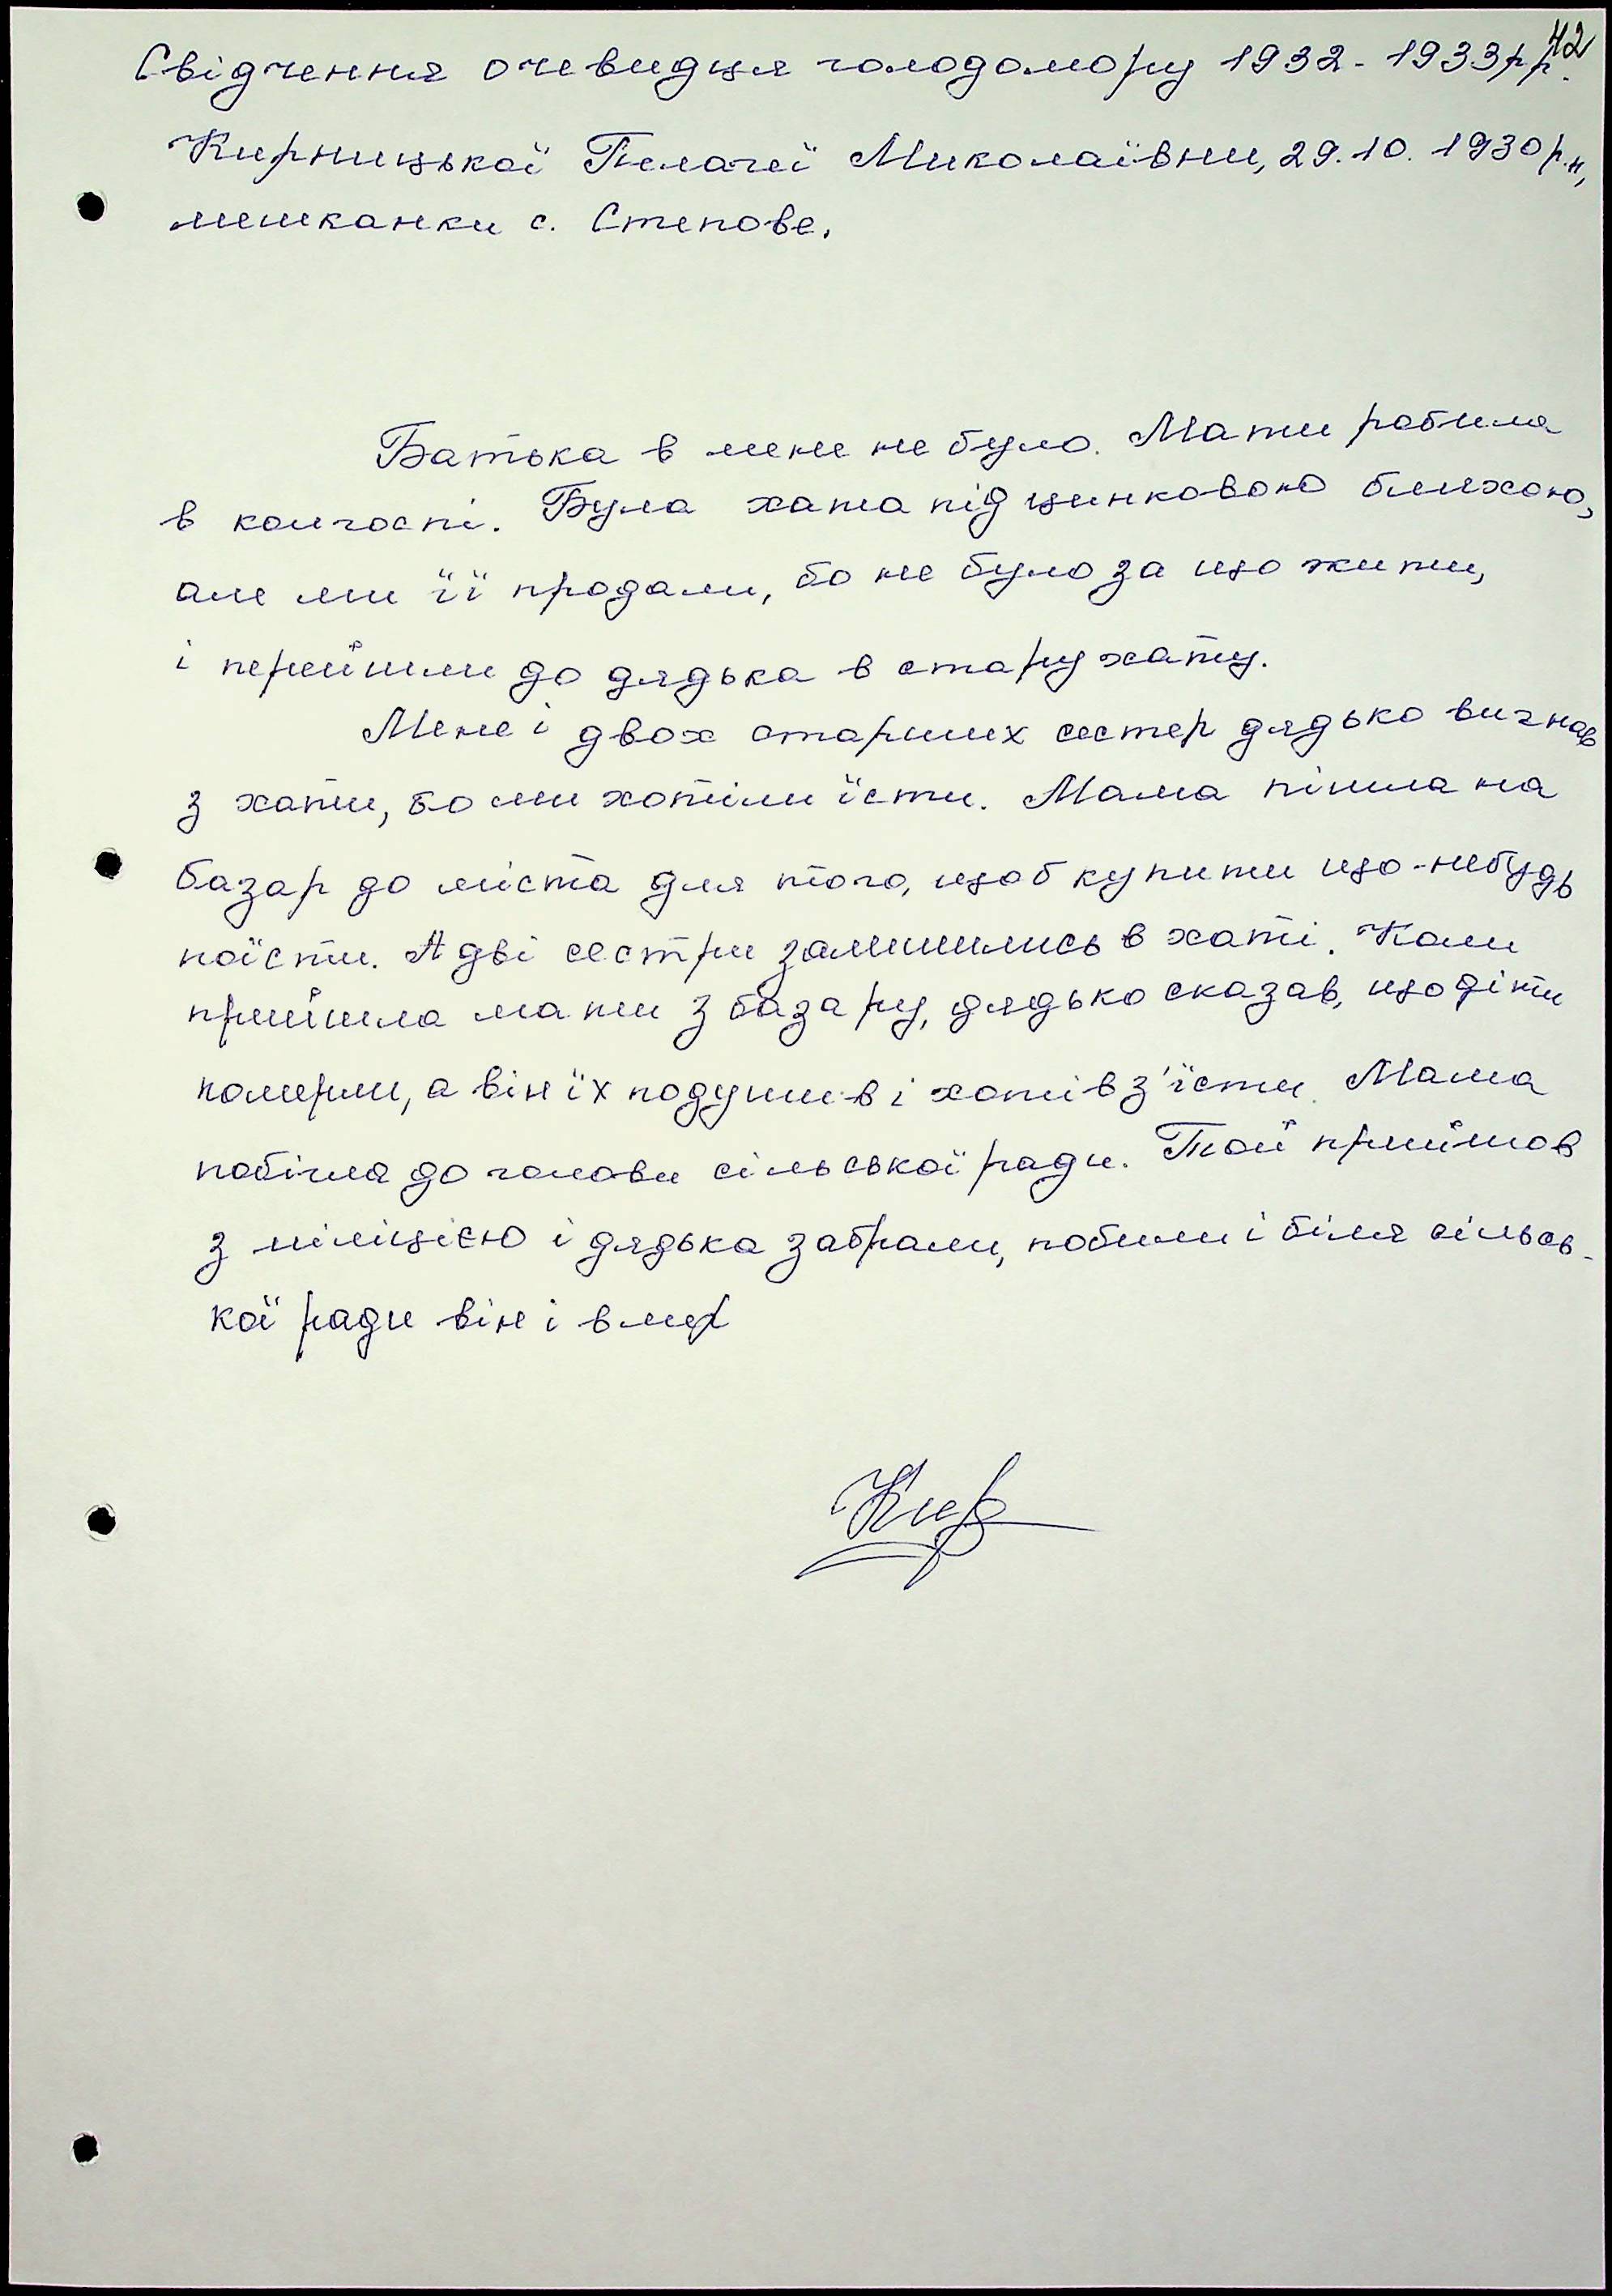 42
Свідчення очевидця голодомору 1932-1933 р.р.
Кирницької Пелагеї Миколаївни, 29.10.1930 р.н,
мешканки с. Степове.
Батька в мене не було. Мати робила
в колгоспі. Була хата під цинковою бляхою,
але ми її продали, бо не було за що жити,
і перейшли до дядька в стару хату.
Мене і двох старших сестер дядько вигнав
з хати, бо ми хотіли їсти. Мама пішла на
базар до міста для того, щоб купити що-небудь
поїсти. А дві сестри залишились в хаті. Коли
прийшла мати з базару, дядько сказав, що діти
померли, а він їх подушив і хотів з'їсти. Мама
побігла до голови сільської ради. Той прийшов
з міліцією і дядька забрали, побили і біля сільсь-
кої ради він і вмер
Кир